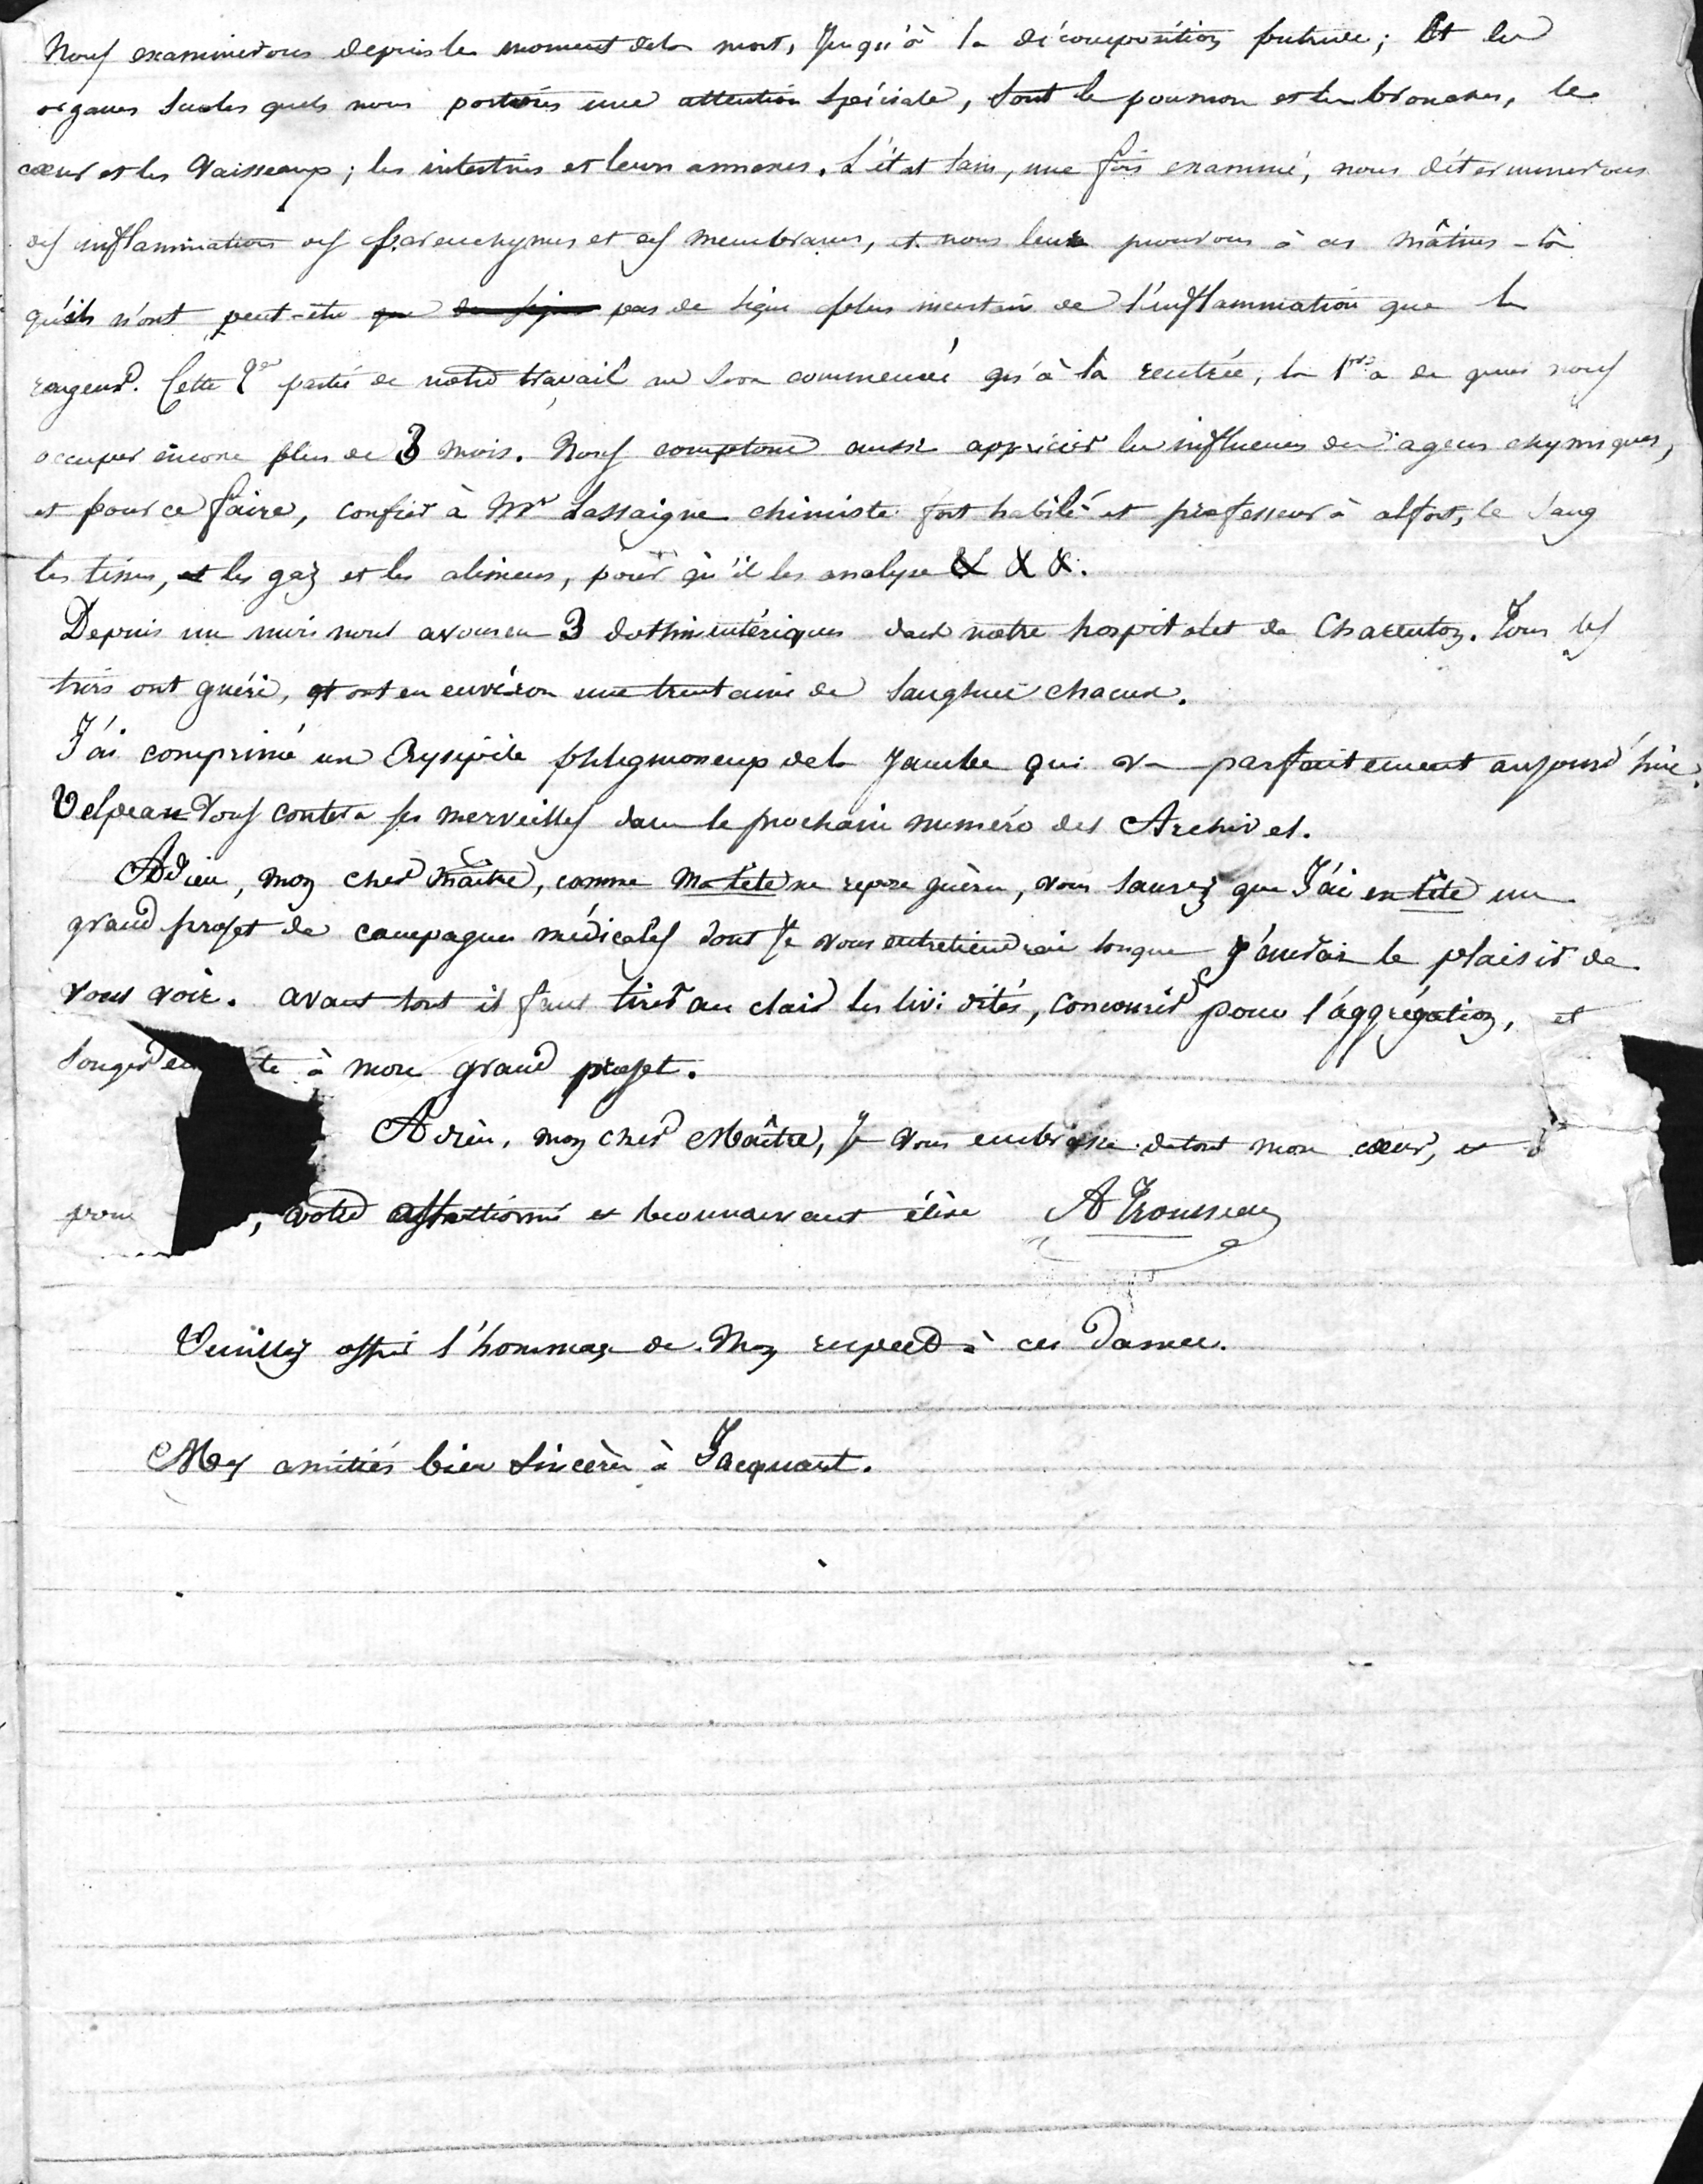 Nous examinerons depuis le moment de la mort, jusqu'à la décomposition putride; Et les
organes sur les quels nous portons une attention spéciale, sont le poumon et les bronches, le
cœur et les vaisseaux; les intestins et leurs annexes. L'état sain, une fois examiné, nous déterminerons
des inflammations des parenchymes et des membranes, et nous leur prouvons à ces mâtins-là
qu'ils n'ont peut-être pas de signe plus incertain de l'inflammation que la
rougeur. Cette 2e partie de notre travail ne sera commencée qu'à la rentrée, la 1re a de quoi nous
occuper encore plus de 3 mois. Nous comptons aussi apprécier les influences des agens chymiques,
et pour ce faire, confier à Mr Lassaigne chimiste fort habile et professeur à alfort, le sang
les tissus, et les gaz et les alimens, pour qu'il les analyse & & &.
Depuis un mois nous avons eu 3 dothinentériques dans notre hospitalet de Charenton. Tous les
trois ont guéri, et ont eu environ une trentaine de sangsues chacun.
J'ai comprimé un Erysipèle phlegmoneux de la jambe qui va parfaitement aujourd'hui.
Velpeau vous contera ses merveilles dans le prochain numéro des Archives.
Adieu, mon cher maître, comme ma tête ne repose guère, vous saurez que J'ai en tête un
grand projet de campagnes médicales dont Je vous entretiendrai lorsque J'aurai le plaisir de
vous voir. avant tout il faut tirer au clair les lividités, concourir pour l'aggrégation, et
songer à mon grand projet.
Adieu, mon cher Maître, Je vous embrasse de tout mon cœur, et
pour , votre affectionné et reconnaissant élève A Trousseau
Veuillez offrir l'hommage de mon respect à ces Dames.
Mes amitiés bien sincères à Jacquart.